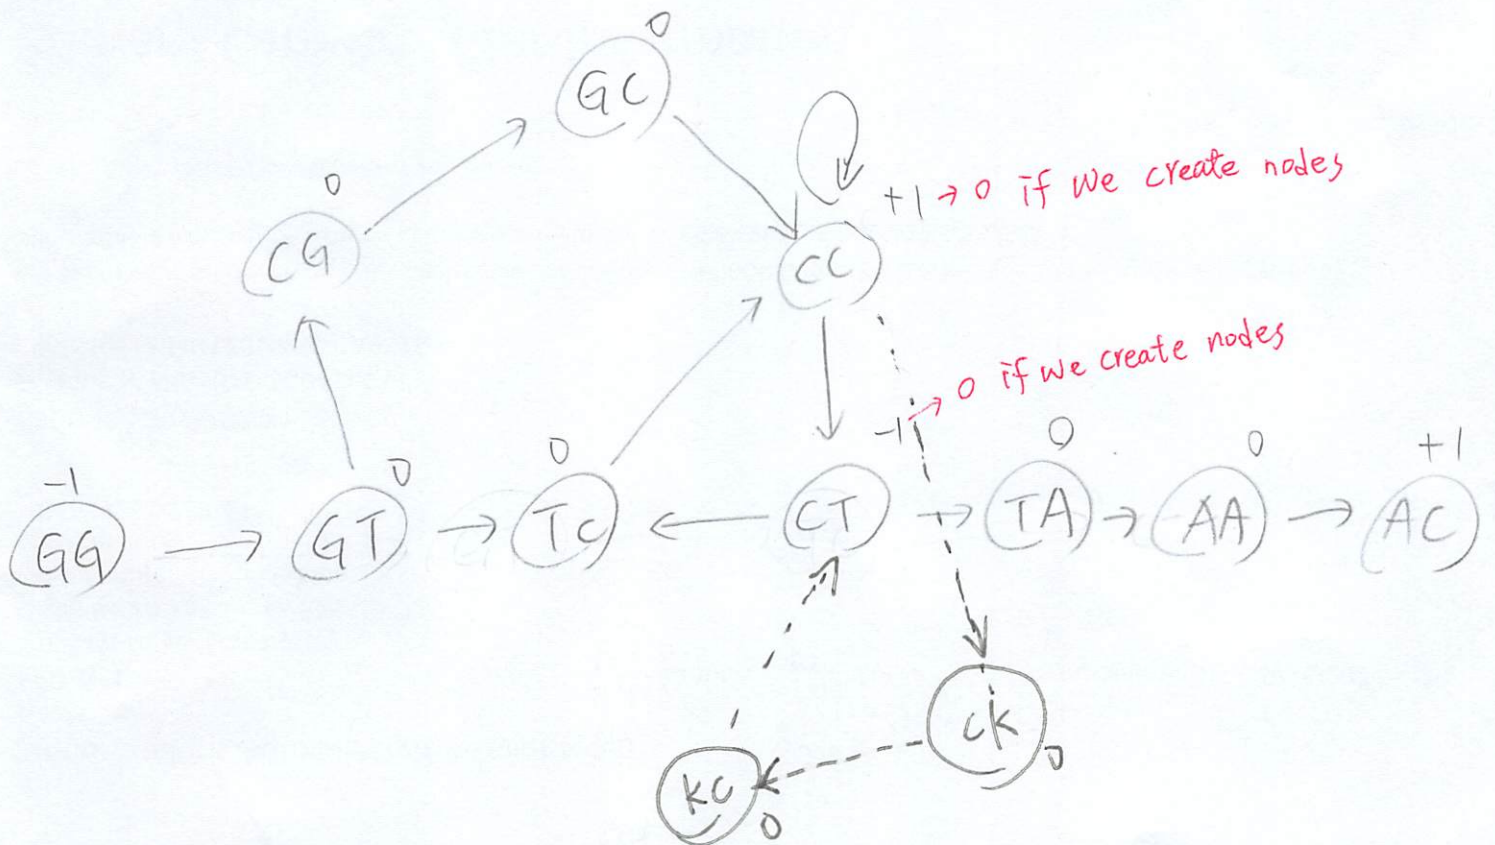 0
GC
+1 → 0 if we create nodes
0
CG
CC
→ 0 if we create nodes
-1
GG
0
GT
0
TC
-1
CT
0
TA
0
AA
+1
AC
CK
0
KC
0